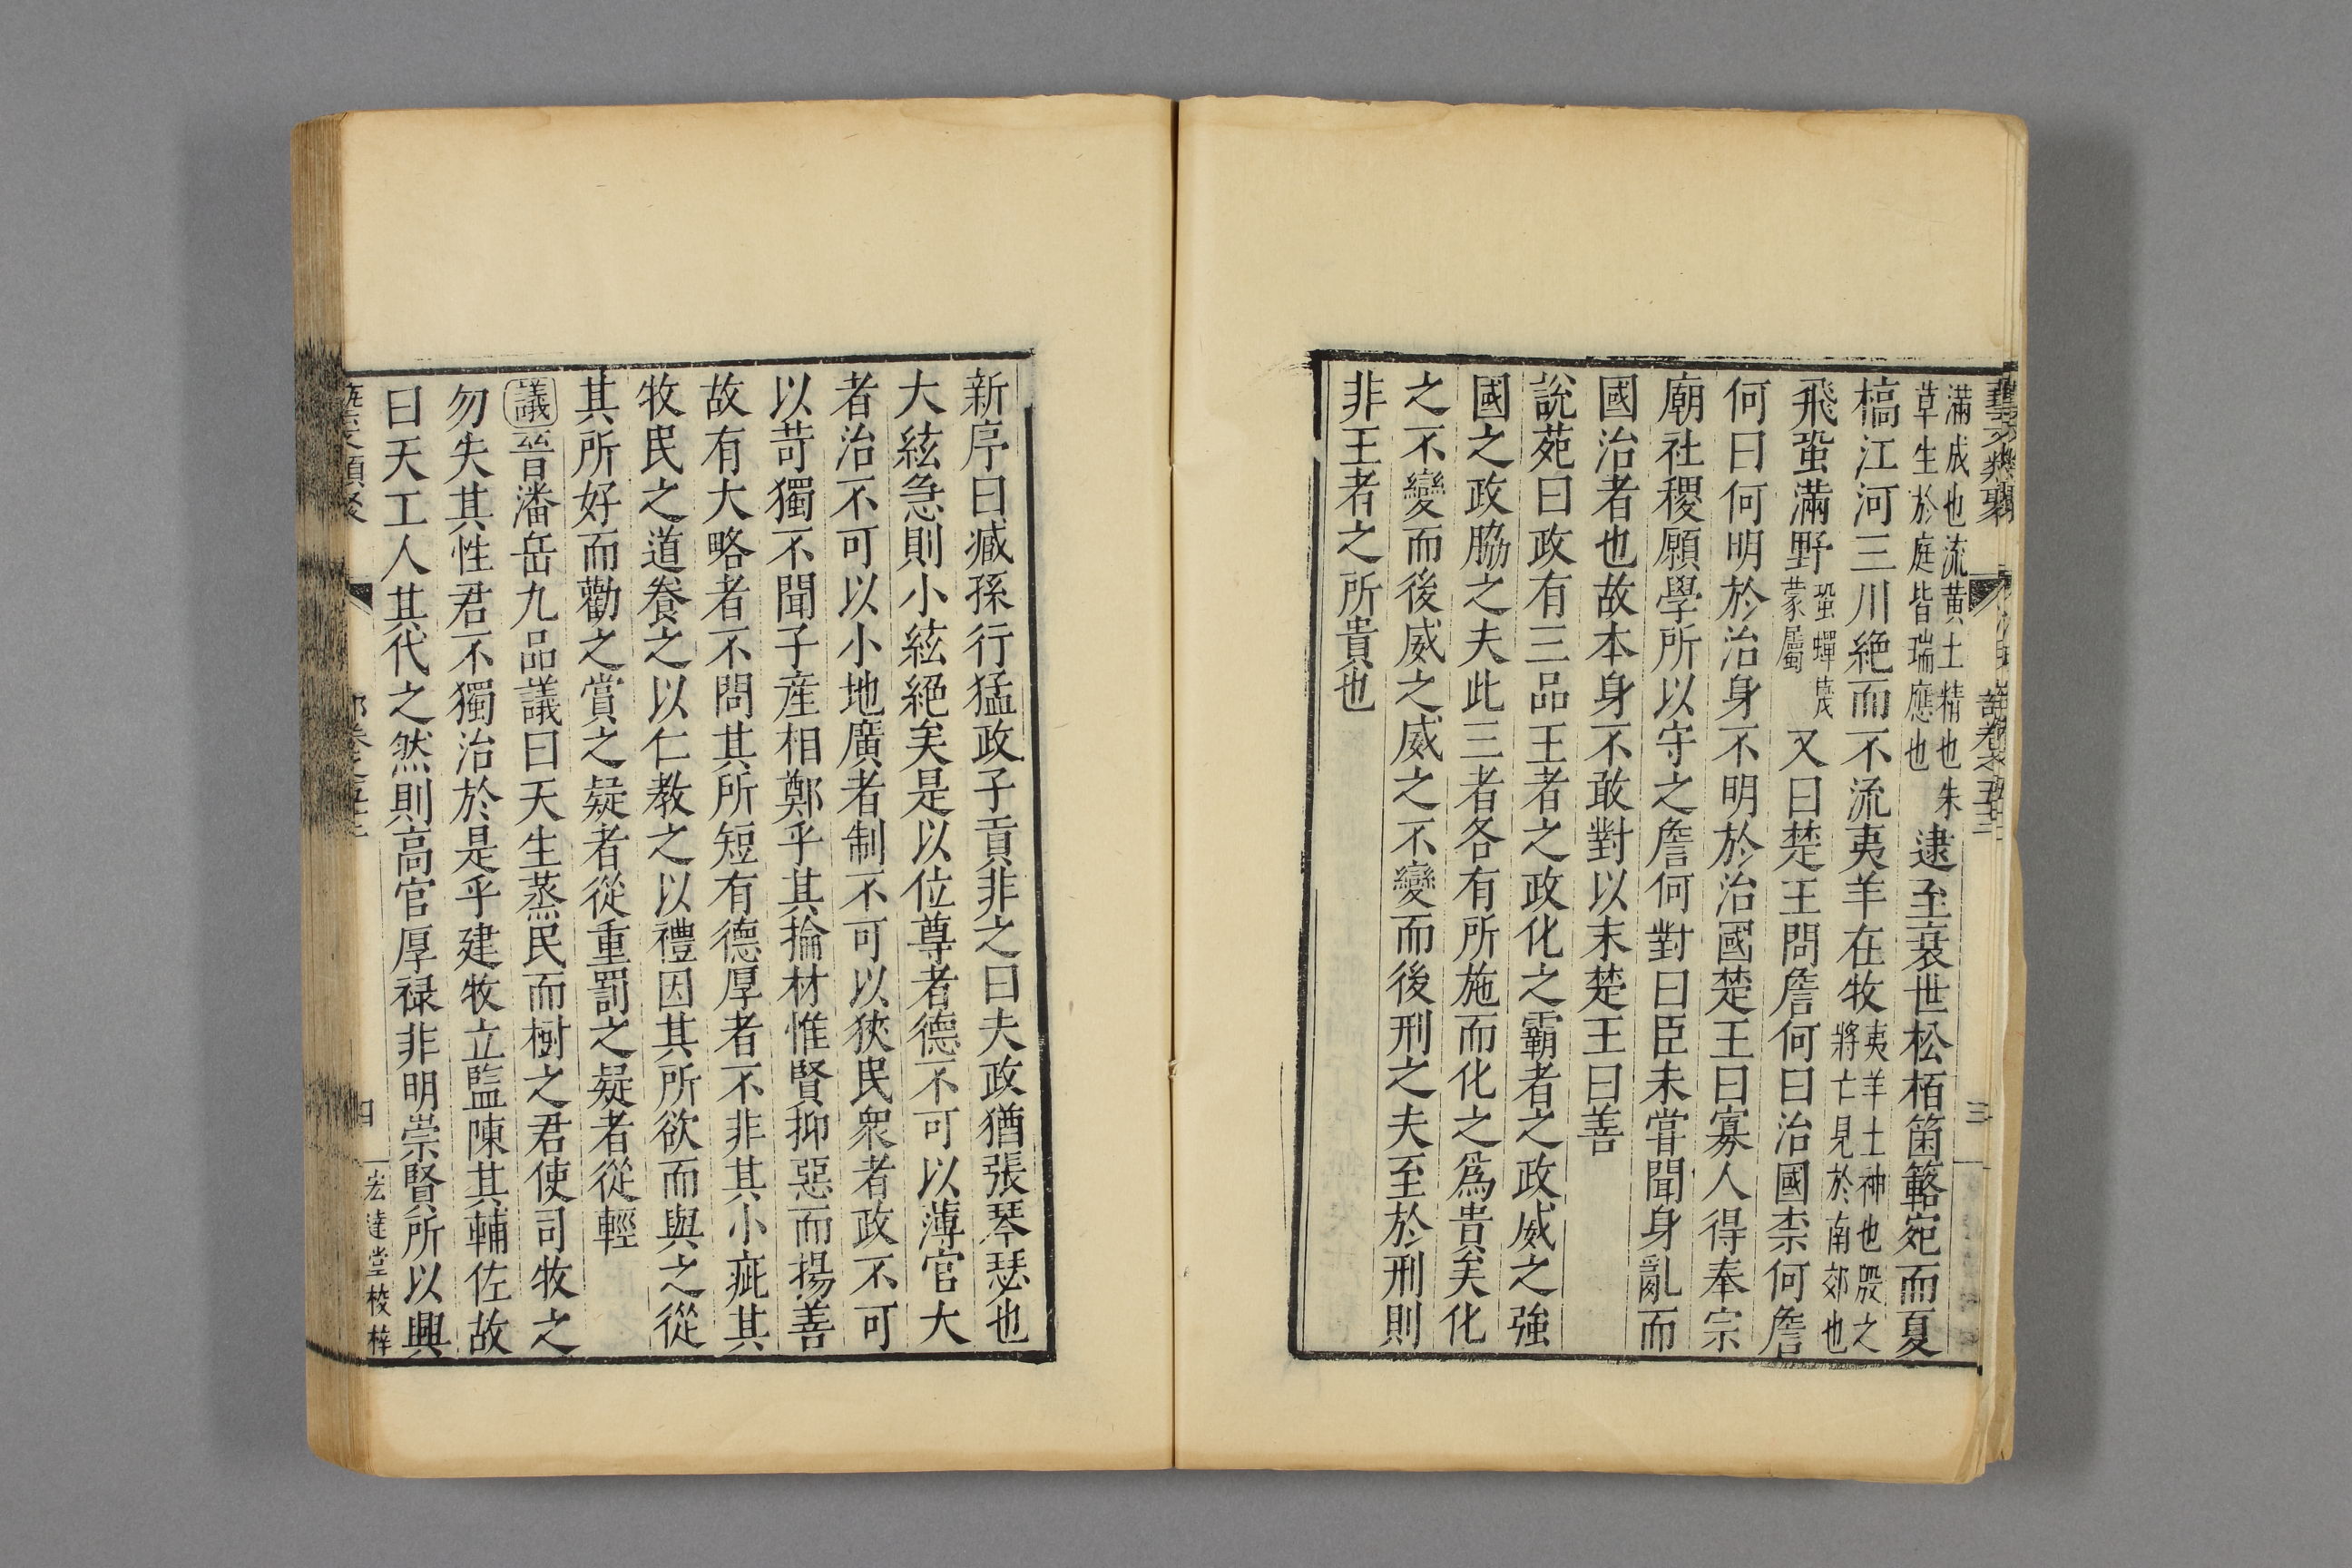 滿成也流黃土精也朱
草生於庭皆瑞應也
逮至衰世松栢箘簵宛而夏
槁江河三川絕而不流夷羊在牧
夷羊土神也殷之
將亡見於南郊也
飛蛩滿野
蛩蟬蔑
蒙屬
又曰楚王問詹何曰治國柰何詹
何曰何明於治身不明於治國楚王曰寡人得奉宗
廟社稷願學所以守之詹何對曰臣未甞聞身亂而
國治者也故本身不敢對以末楚王曰善
說苑曰政有三品王者之政化之霸者之政威之強
國之政脇之夫此三者各有所施而化之爲貴矣化
之不變而後威之威之不變而後刑之夫至於刑則
非王者之所貴也
新序曰臧孫行猛政子貢非之曰夫政猶張琴瑟也
大絃急則小絃絕矣是以位尊者德不可以薄官大
者治不可以小地廣者制不可以狹民衆者政不可
以苛獨不聞子產相鄭乎其掄材惟賢抑惡而揚善
故有大略者不問其所短有德厚者不非其小疵其
牧民之道養之以仁教之以禮因其所欲而與之從
其所好而勸之賞之疑者從重罰之疑者從輕
議晉潘岳九品議曰天生蒸民而樹之君使司牧之
勿失其性君不獨治於是乎建牧立監陳其輔佐故
曰天工人其代之然則高官厚禄非明崇賢所以興
宏達堂校梓